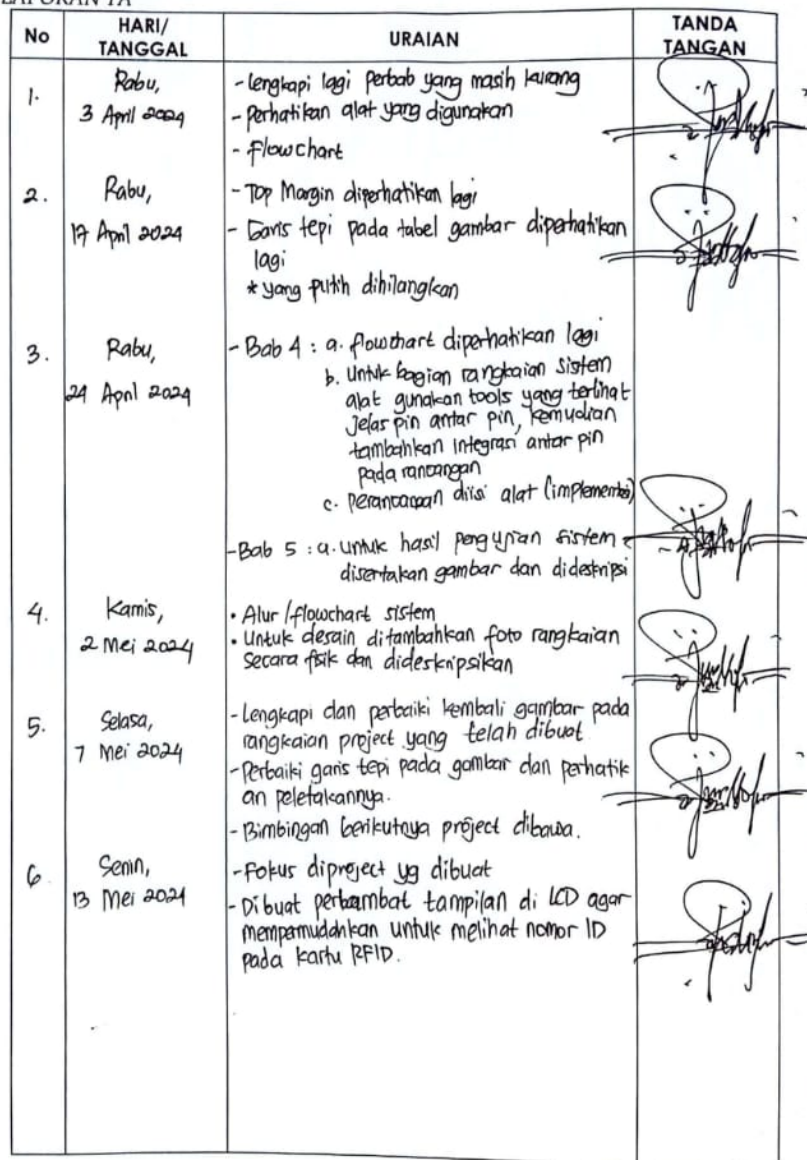 LAPORAN TA
No HARI/ TANGGAL URAIAN TANDA TANGAN
1. Rabu, 3 April 2024
- Lengkapi lagi perbab yang masih kurang
- Perhatikan alat yang digunakan
- Flowchart
2. Rabu, 17 April 2024
- Top Margin diperhatikan lagi
- Garis tepi pada tabel gambar diperhatikan
lagi
* yang putih dihilangkan
3. Rabu, 24 April 2024
- Bab 4 : a. flowchart diperhatikan lagi
b. Untuk bagian rangkaian sistem
alat gunakan tools yang terlihat
jelas pin antar pin, kemudian
tambahkan integrasi antar pin
pada rancangan
c. perancangan diisi alat (implementasi)
- Bab 5 : a. untuk hasil pengujian sistem
disertakan gambar dan dideskripsi
4. Kamis, 2 Mei 2024
• Alur / flowchart sistem
• Untuk desain ditambahkan foto rangkaian
secara fisik dan dideskripsikan
5. Selasa, 7 Mei 2024
- Lengkapi dan perbaiki kembali gambar pada
rangkaian project yang telah dibuat
- Perbaiki garis tepi pada gambar dan perhatik
an peletakannya.
- Bimbingan berikutnya project dibawa.
6. Senin, 13 Mei 2024
- Fokus diproject yg dibuat
- Dibuat perlambat tampilan di LCD agar
mempermudahkan untuk melihat nomor ID
pada kartu RFID.